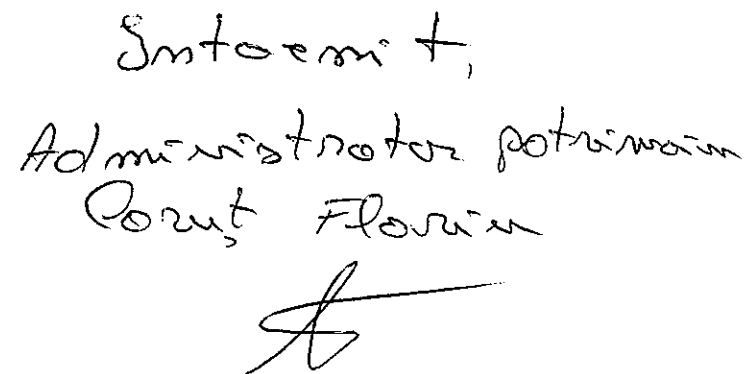 Intocmit,
Administrator patrimoniu
Coruț Florin